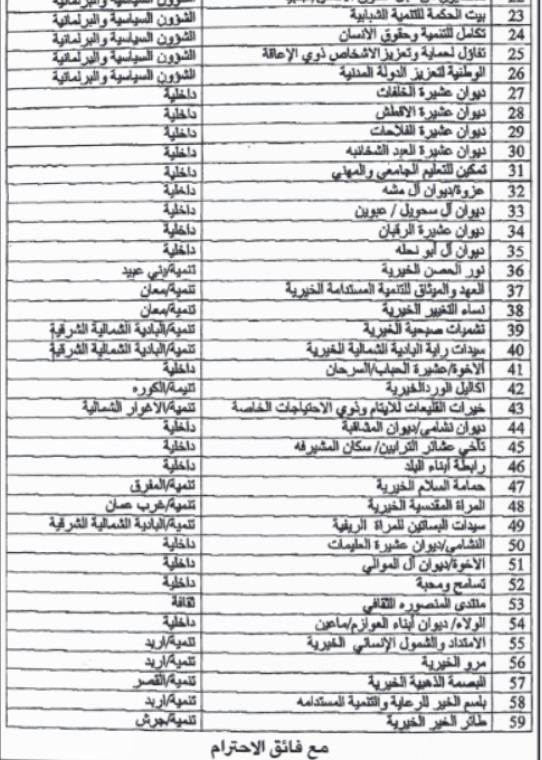 الشؤون السياسية والبرلمانية
23 بيت الحكمة للتنمية الشبابية الشؤون السياسية والبرلمانية
24 تكامل للتنمية وحقوق الانسان الشؤون السياسية والبرلمانية
25 تفاؤل لحماية وتعزيز الاشخاص ذوي الإعاقة الشؤون السياسية والبرلمانية
26 الوطنية لتعزيز الدولة المدنية الشؤون السياسية والبرلمانية
27 ديوان عشيرة الخلفات داخلية
28 ديوان عشيرة الاقطش داخلية
29 ديوان عشيرة الفلاحات داخلية
30 ديوان عشيرة العبد الشخانبه داخلية
31 تمكين للتعليم الجامعي والمهني داخلية
32 عزوة/ديوان آل مشه داخلية
33 ديوان آل سحويل / عبوين داخلية
34 ديوان عشيرة الرقبان داخلية
35 ديوان آل أبو نحله داخلية
36 نور الحصن الخيرية تنمية/بني عبيد
37 العهد والميثاق للتنمية المستدامة الخيرية تنمية/معان
38 نساء التغيير الخيرية تنمية/معان
39 نشميات صبحية الخيرية تنمية/البادية الشمالية الشرقية
40 سيدات راية البادية الشمالية الخيرية تنمية/البادية الشمالية الشرقية
41 الاخوة/عشيرة الحباب/السرحان داخلية
42 اكاليل الورد الخيرية تنيمة/الكوره
43 خيرات القليعات للايتام وذوي الاحتياجات الخاصة تنمية/الاغوار الشمالية
44 ديوان نشامى/ديوان المشاقبة داخلية
45 تآخي عشائر الترابين/ سكان المشيرفه داخلية
46 رابطة أبناء البلد داخلية
47 حمامة السلام الخيرية تنمية/المفرق
48 المراة المقدسية الخيرية تنمية/غرب عمان
49 سيدات البساتين للمراة الريفية تنمية/البادية الشمالية الشرقية
50 النشامى/ديوان عشيرة العليمات داخلية
51 الاخوة/ديوان آل الموالي داخلية
52 تسامح ومحبة داخلية
53 منتدى المنصوره الثقافي ثقافة
54 الولاء/ ديوان أبناء العوازم/ماعين داخلية
55 الامتداد والشمول الإنساني الخيرية تنمية/اربد
56 مرو الخيرية تنمية/اربد
57 البصمة الذهبية الخيرية تنمية/القصر
58 بلسم الخير للرعاية والتنمية المستدامه تنمية/اربد
59 طائر الخير الخيرية تنمية/جرش
مع فائق الاحترام